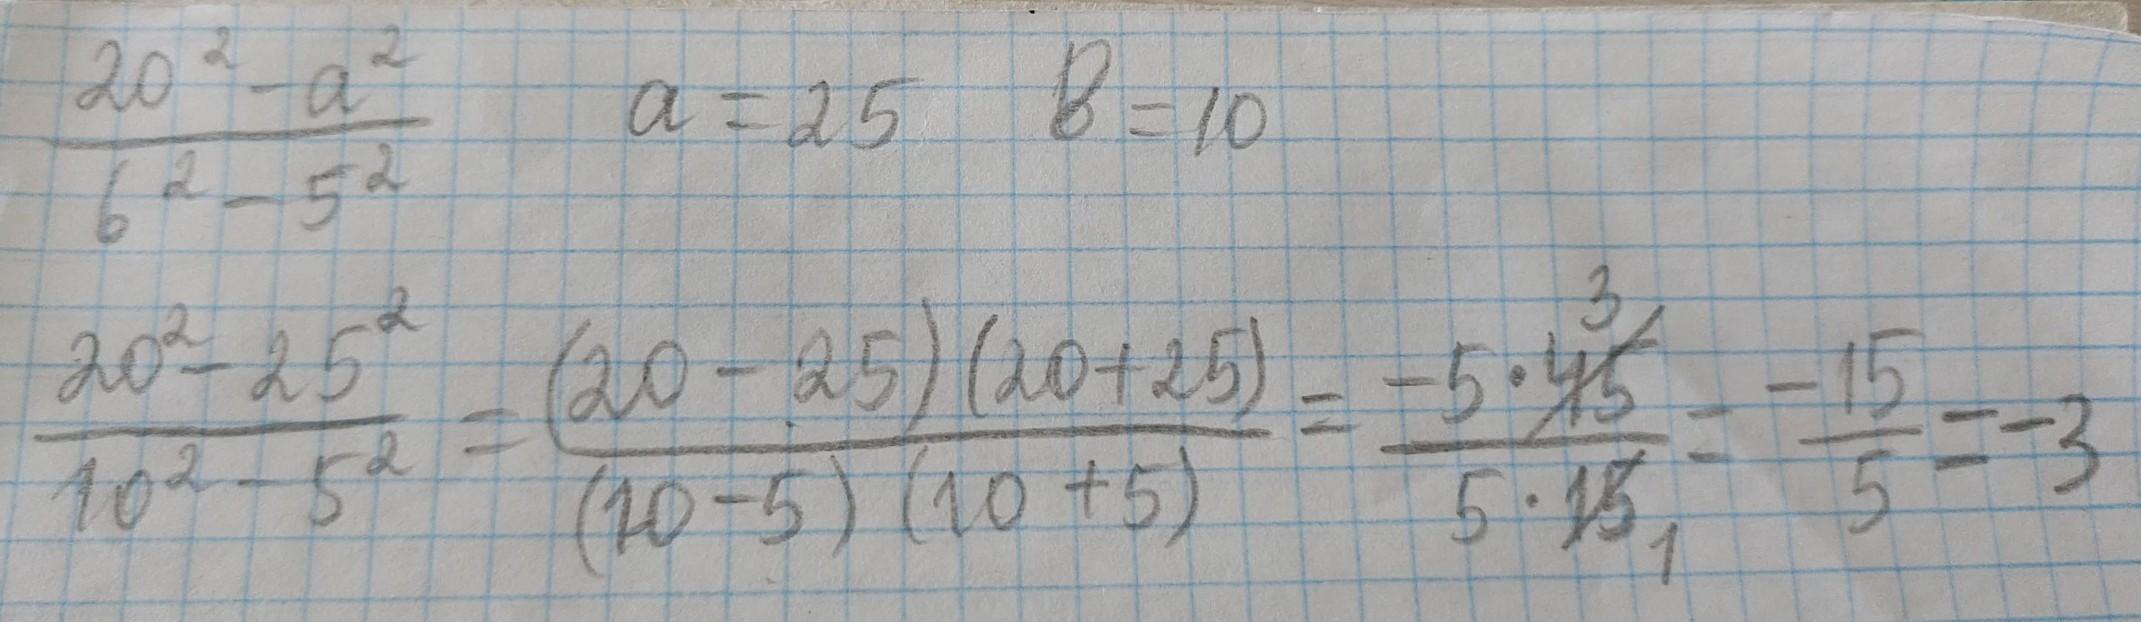 (20² - a²)/(b² - 5²) a = 25 b = 10
(20² - 25²)/(10² - 5²) = ((20 - 25)(20+25))/((10-5)(10+5)) = (-5·45 3)/(5·15 1) = -15/5 = -3